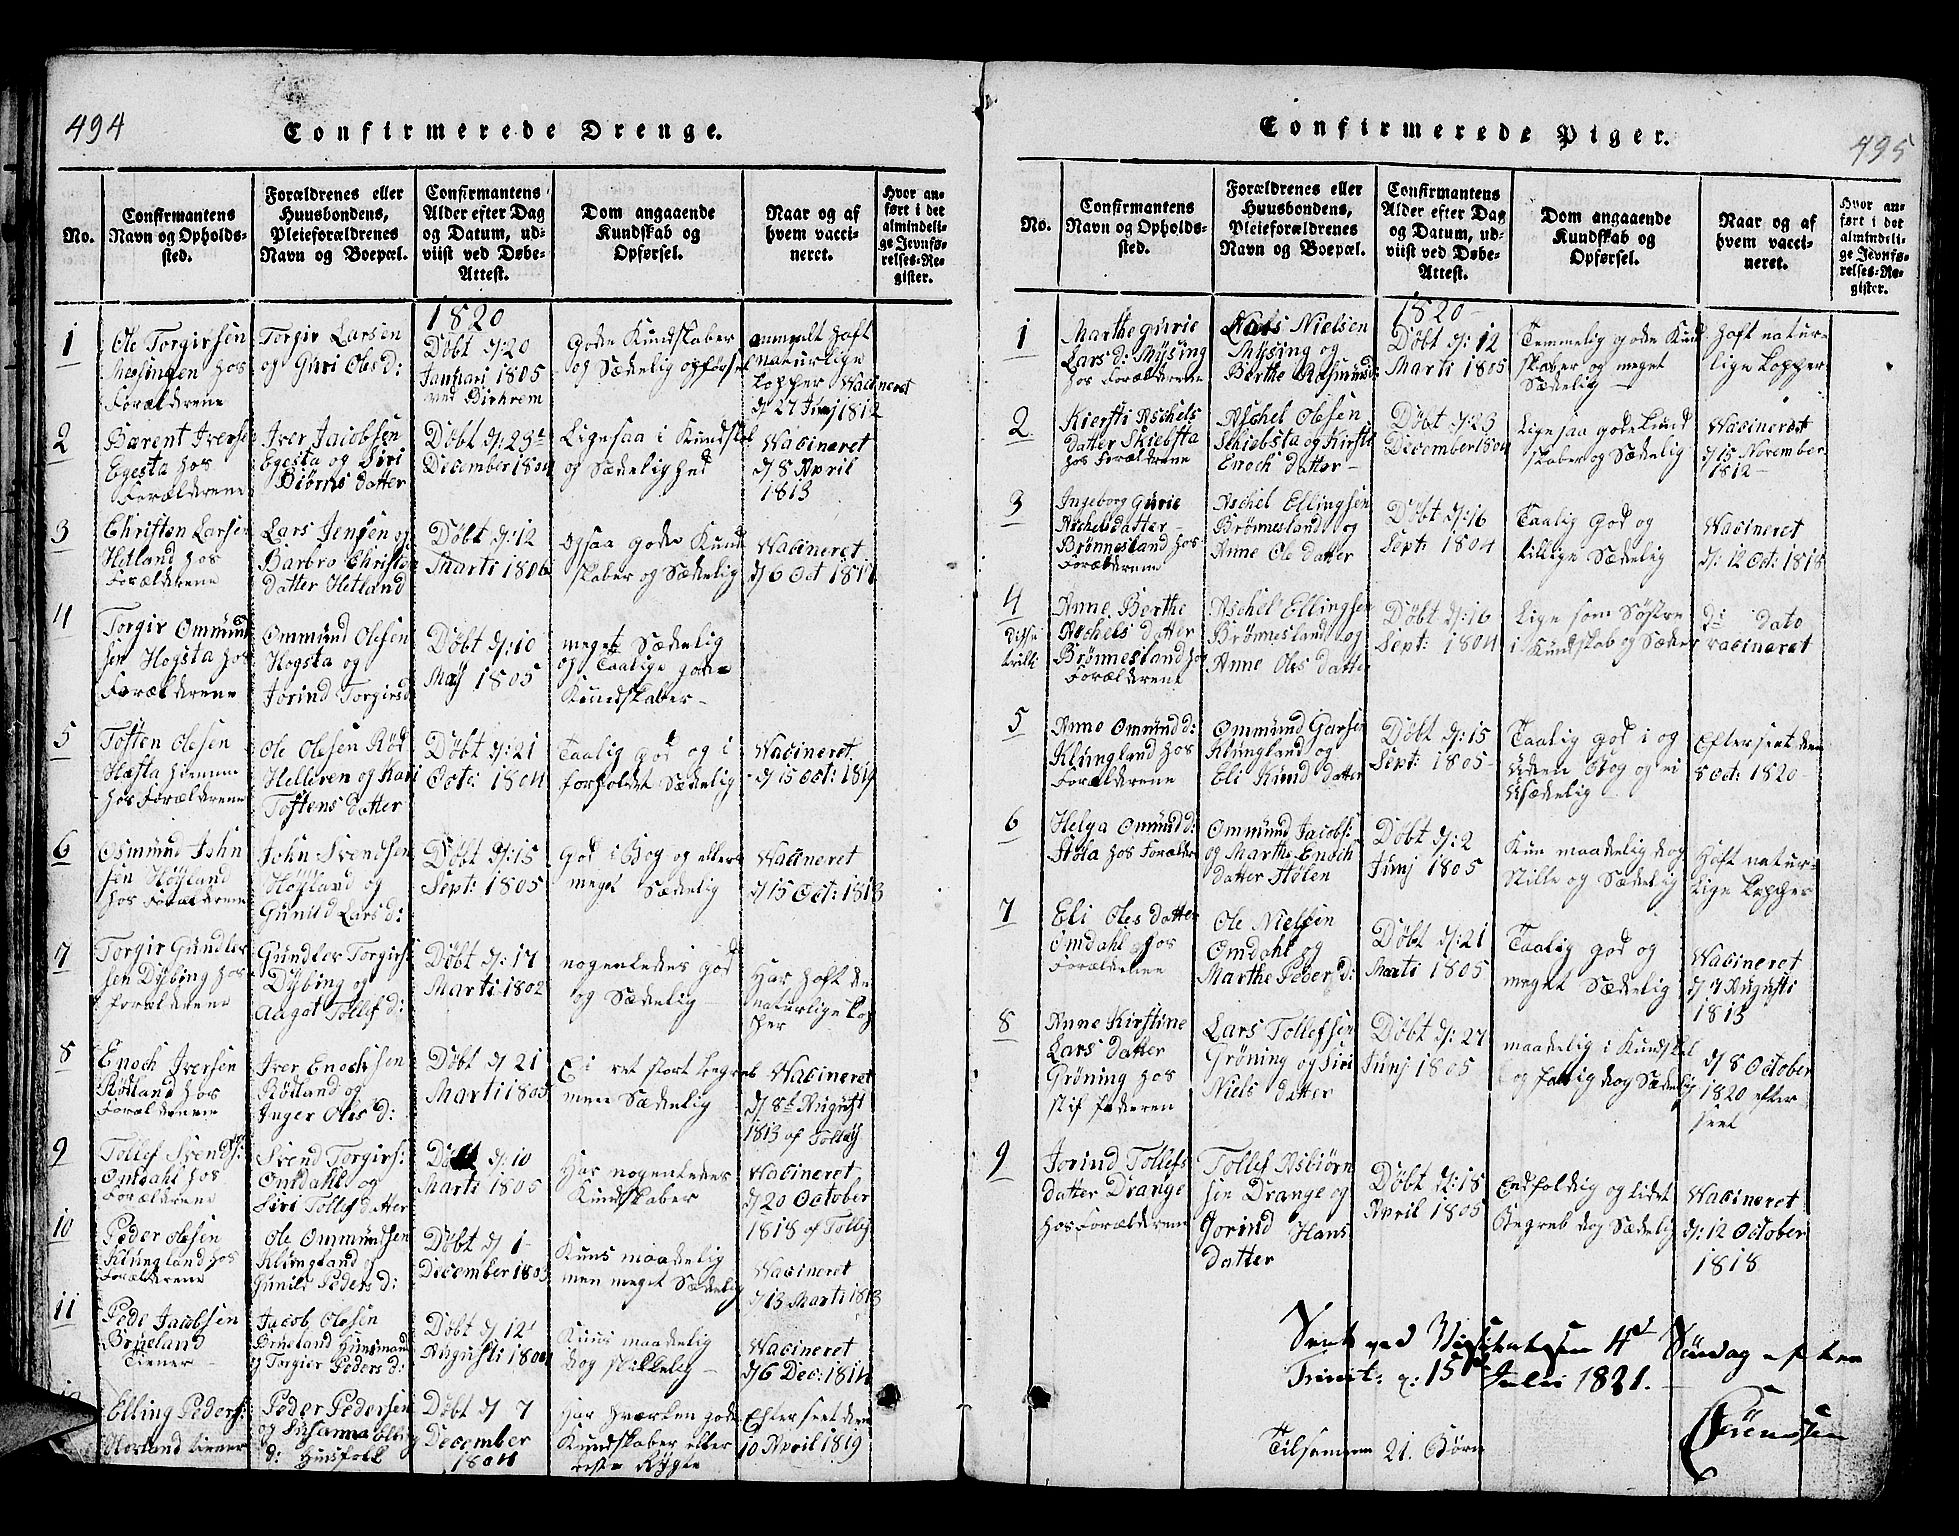 494
Confirmerede Drenge.
No.
Confirmantens
Navn og Opholds-
sted.
Forældrenes eller
Huusbondens,
Pleieforældrenes
Navn og Boepæl.
Confirmantens
Alder efter Dag
og Datum, ud-
viist ved Døbe-
Attest.
Dom angaaende
Kundskab og
Opførsel.
Naar og af
hvem vacci-
neret.
Hvor an-
ført i det
almindeli-
ge Jevnfø-
relses-Re-
gister.
1820
1
Ole Torgirsen
hos
Forælderene
Torgir Larsen
og Guri Olesd:
Døbt d: 20
Januari 1805
ved
Gode Kundskaber
og Sædelig opførsel
anmælt haft
Naturlige
Kopper Vacineret
d 27 Junj 1812
2
Bærent Iversen
Egesta hos
Forælderene
Iver Jacobsen
Egesta og Siri
Biørns datter
Døbt d: 23de
December 1804
Ligesaa i Kundskab
og Sædelighed
Vacineret
d/ 8 April
1813
3
Christen Larsen
Hetland hos
Forælderene
Lars Jensen og
Barbro Christen
datter Hetland
Døbt d: 12
Marti 1806
Ogsaa gode Kund
skaber og Sædelig
Vacineret
d/ 6 Oct 1817
4
Torgir Ommund
sen Hogsta hos
Forælderene
Ommund Olesen
Hogsta og
Jorind Torgirsd
Døbt d: 10
Maj 1805
meget Sædelig
og Taalige gode
Kundskaber -
5
Tosten Olesen
Hæsta hiemme
hos Forælderene
Ole Olesen Rød
Helleren og Kari
Tostens datter
Døbt d: 21
Octr: 1804
Taalig god og i
forholdet Sædelig
Vacineret
d/ 15 Oct: 1819
6
Osmund John
sen Høyland
hos Forælderene
John Svendsen
Høyland og
Gunild Larsd:
Døbt d: 15
Sept: 1805
God i Bog og ellers
meget Sædelig
Vacineret
d/ 15 Oct: 1813
7
Torgir Gundler
sen Dybing hos
forælderene
Gundler Torgirs:
Dybing og
Aagot Tollefd:
Døbt d: 17
Marti 1802
nogenledes god
og Sædelig -
Har haft de
naturlige Kop
per
8
Enoch Iversen
Rødland hos
Forælderene
Iver Enochsen
Rødland og
Inger Olesd:
Døbt d/ 21
Marti 1805
Ei ret stort begreb
men Sædelig
Vacineret
d/ 8de August
1813 af
9
Tollef Svends:
Omdahl hos
Forælderene
Svend Torgirs:
Omdahl og
Siri Tollefdatter
Døbt d: 10
Marti 1805
Har nogenledes
Kundskaber
Vacineret
d/ 20 October
1818 af
10
Peder Olesen
Klungland hos
Forælderene
Ole Ommundsen
Klungland og
Gunild Pedersd:
Døbt d/ 1
December 1803
Kuns maadelig
men meget Sædelig
Vacineret
d/ 13 Marti 1813
11
Pede Jacobsen
Brueland
Tiener
Jacob Olesen
Brueland Husmand
og Torgier Pedersd:
Døbt d/ 12
Augusti 1804
Kuns maadelig
dog skikkelig -
Vacineret
d/ 6 Dec: 1814
12
Elling Peders:
tiener
Peder Pedersen
og Susanna Elling
d: Husfolk
Døbt d/ 7
December
1804
Har hverken gode
Kundskaber eller
Rygte
Efterseet den
10 April 1819
Confirmerede Piger.
495
No.
Confirmantens
Navn og Opholds-
sted.
Forældrenes eller
Huusbondens,
Pleieforældrenes
Navn og Boepæl.
Confirmantens
Alder efter Dag
og Datum, ud-
viist ved Døbe-
Attest.
Dom angaaende
Kundskab og
Opførsel.
Naar og af
hvem vacci-
neret.
Hvor an-
ført i det
almindeli-
ge Jevnfø-
relses-Re-
gister.
1820
1
Marthegurie
Larsd: Mysing
hos Forælderene
Lars Nielsen
Mysing og
Berthe Rasmunds
Døbt d: 12
Marti 1805
Temmelig gode Kund
skaber og meget
Sædelig
Haft natur-
lige Kopper
2
Kiersti Aschels
datter Skiebsta
hos Forælderene
Aschel Olesen
Schiebsta og Kirsti
Enoch datter -
Døbt d: 23
December 1804
Ligesaa gode Kund
skaber og Sædelig
Vacineret
d/ 15 November
1812 -
3
Ingeborg Gurie
Aschelsdatter
Brønnesland hos
Forælderene
Aschel Ellingsen
Brønnesland og
Anne Ole datter
Døbt d: 16
Sept: 1804
Taalig God og
tillige Sædelig
Vacineret
d: 12 Oct: 1818
4
disse
tvill:
Anne Berthe
Aschels datter
Brønnesland hos
Forælderene
Aschel Ellingsen
Brønnesland og
Anne Oles datter
Døbt d: 16
Sept: 1804
Lige som Søstre
i Kundskab og Sæder
di dato
vacineret
5
Anne Omundd:
Klungland hos
Forælderene
Ommund Garsen
Klungland og
Eli Knud datter
Døbt d: 15
Sept: 1805
Taalig god i og
uden Bog og ei
Usædelig
Efterseet den
8 Oct: 1820
6
Helga Omundd:
Støla hos Forælder
Ommund Jacobs:
og Marthe Enoch
datter Stølen
Døbt d: 2
Junj 1805
Kun maadelig dog
Stille og Sædelig
Haft natur-
lige Kopper
7
Eli Olesdatter
Omdahl hos
Forælderene
Ole Nielsen
Omdahl og
Marthe Pedersd:
Døbt d: 21
Marti 1805
Taalig god og
meget Sædelig
Vacineret
d/ 7 Augusti
1813
8
Anne Kirstine
Lars datter
Grøning hos
Stif faderen
Lars Tollefsen
Grøning og Siri
Niels datter
Døbt d: 27
Junj 1805
maadelig i Kundskab
og dog Sædelig
d/ 8 October
1820 efter
seet
9
Jorind Tollefs
datter Drange
hos Forælderene
Tollef Asbiørn
sen Drange og
Jorind Hans
datter
Døbt d: 18
April 1805
Enfoldig og lidet
Begreb dog Sædelig
Vacineret
d: 12 October
1818
ved Visitatsen 4de Søndag efter
Trinit: d: 15de Julii 1821.
Sørensen
Tilsammen 21. Børn